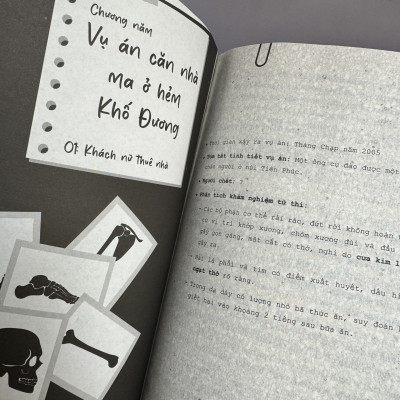 Chương năm
Vụ án căn nhà
ma ở hẻm
Khố Đương
01: Khách nữ thuê nhà
gian xảy ra vụ án: Tháng Chạp năm 2005
Tóm tắt tình tiết vụ án: Một ông cụ đào được một
người ở núi Tiên Phúc.
Người chết: ?
Phân tích khám nghiệm tử thi:
- Các bộ phận cơ thể rải rác, đứt rời không hoàn
vị trí khớp xương, chỏm xương đùi và đầu
gãy gọn gàng, mặt cắt có thớ, nghi do cưa kim
gây ra.
lá phổi và tim có điểm xuất huyết, dấu
ngạt thở rõ ràng.
- Trong dạ dày có lượng nhỏ bã thức ăn, suy đoán
giết hại vào khoảng 2 tiếng sau bữa ăn.